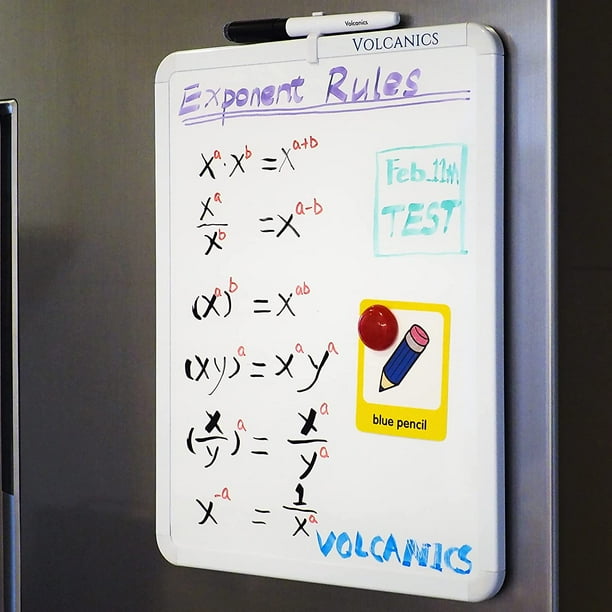 Volcanics
VOLCANICS
Exponent Rules
xᵃ · xᵇ = xᵃ⁺ᵇ
xᵃ/xᵇ = xᵃ⁻ᵇ
(xᵃ)ᵇ = xᵃᵇ
(xy)ᵃ = xᵃyᵃ
(x/y)ᵃ = xᵃ/yᵃ
x⁻ᵃ = 1/xᵃ
Feb. 11th
TEST
blue pencil
VOLCANICS